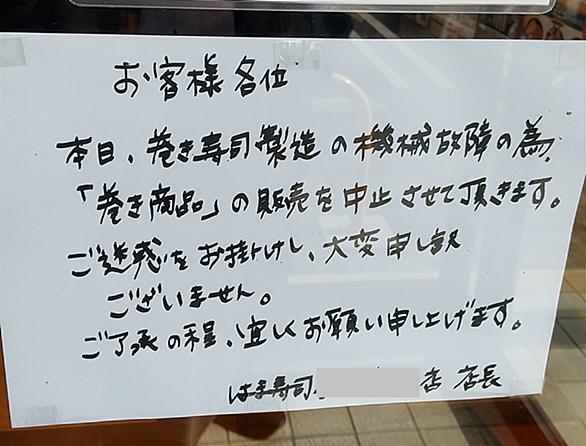 お客様各位
本日、巻き寿司製造の機械故障の為、
「巻き商品」の販売を中止させて頂きます。
ご迷惑をお掛けし、大変申し訳
ございません。
ご了承の程、宜しくお願い申し上げます。
はま寿司 店 店長